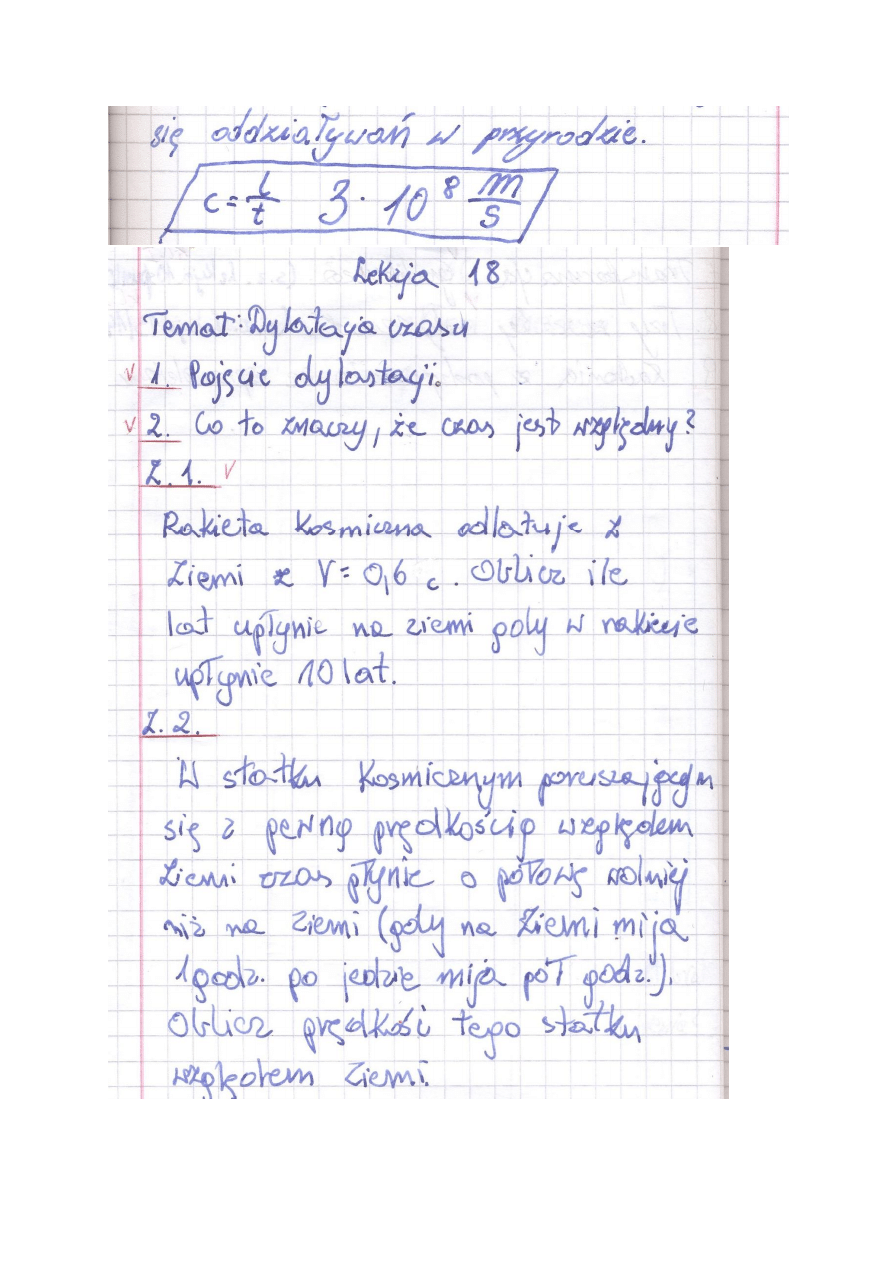 się oddziaływań w przyrodzie.
c = l/t 3 · 10^8 m/s
Lekcja 18
Temat: Dylatacja czasu
v 1. Pojęcie dylastacji.
v 2. Co to znaczy, że czas jest względny?
Z. 1. v
Rakieta kosmiczna odlatuje z
Ziemi z V = 0,6 c. Oblicz ile
lat upłynie na ziemi gdy w rakiecie
upłynie 10 lat.
Z. 2.
W statku kosmicznym poruszającym
się z pewną prędkością względem
Ziemi czas płynie o połowę wolniej
niż na Ziemi (gdy na Ziemi mija
1 godz. po jedzie mija pół godz.).
Oblicz prędkość tego statku
względem Ziemi.